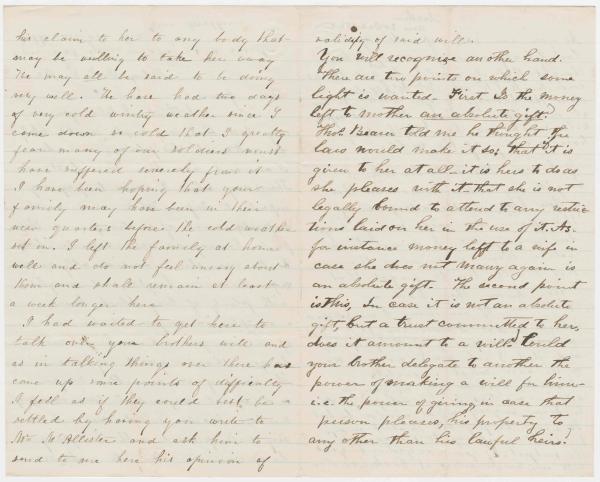 his claim to her to any body that
may be willing to take her away
We may all be said to be doing
very well. We have had two days
of very cold wintry weather since I
came down so cold that I greatly
fear many of our soldiers must
have suffered severely from it
I have been hoping that your
family may have been in their
new quarters before the cold weather
set in. I left the family at home
well and do not feel uneasy about
them and shall remain at least
a week longer here
I had waited to get here to
talk over your brothers will and
as in talking things over there has
come up some points of difficulty
I feel as if they could best be
settled by having you write to
Mr McAllister and ask him to
send to me here his opinion of
validity of said will.
You will recognize another hand.
There are two points on which some
light is wanted. First Is the money
left to mother an absolute gift?
Thos. told me he thought the
law would make it so; that if it is
given to her at all it is hers to do as
she pleases with it, that she is not
legally bound to attend to any restric
tions laid on her in the use of it. As
for instance money left to a wife in
case she does not marry again is
an absolute gift. The second point
is this, In case it is not an absolute
gift, but a trust committed to her,
does it amount to a will? Could
your brother delegate to another the
power of making a will for him—
i.e. the power of giving in case that
person pleases, his property to
any other than his lawful heirs?